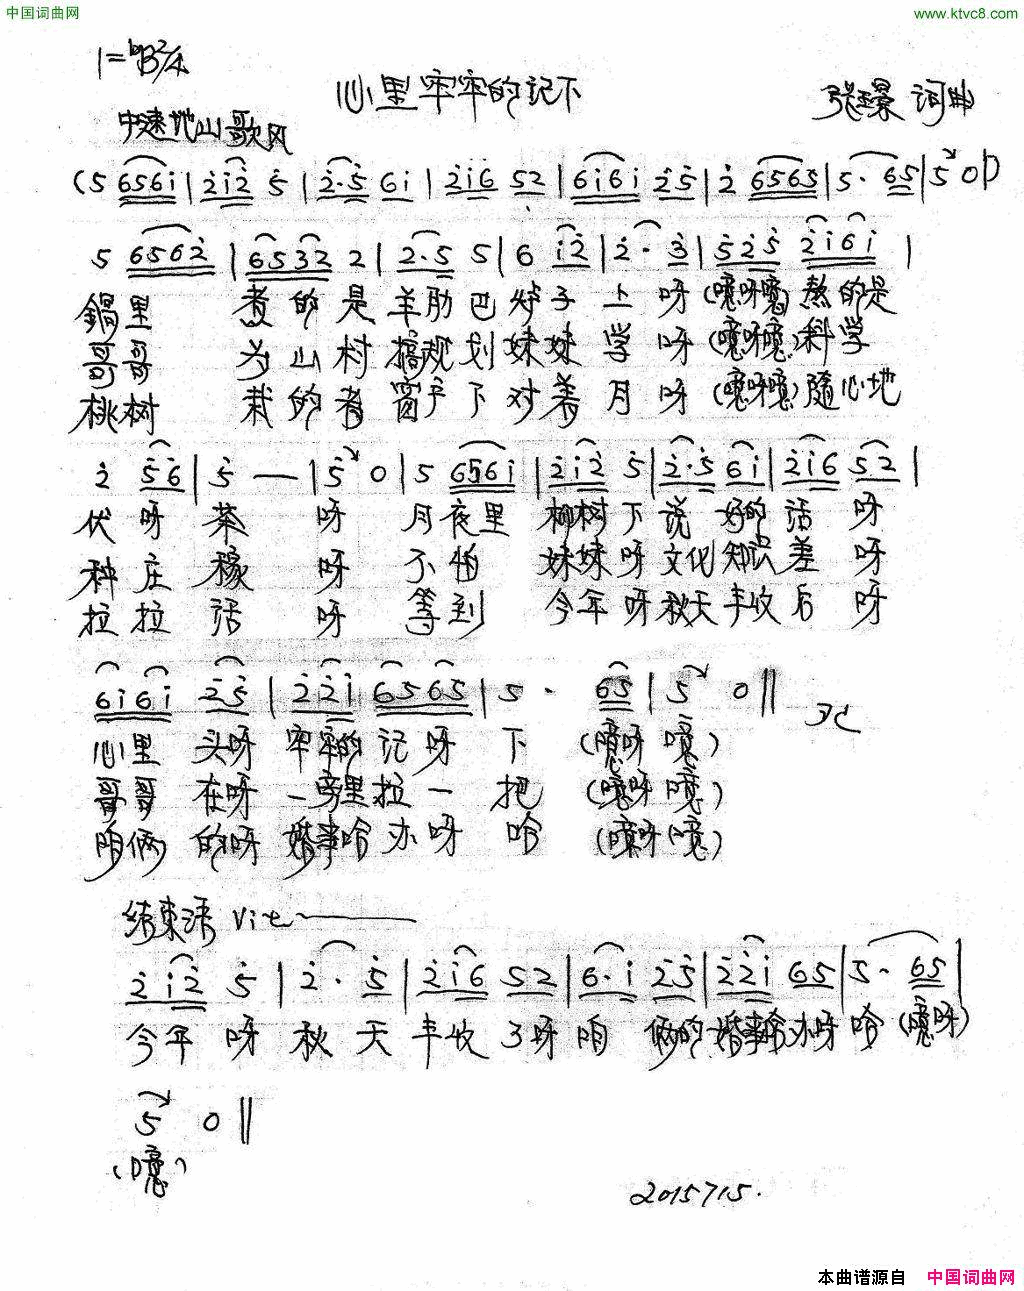 中国词曲网
www.ktvc8.com
1=♭B 2/4
心里牢牢的记下
词曲
中速地山歌风
(5 6561 | 212 5 | 2·5 61 | 216 52 | 6161 25 | 2 6565 | 5· 65 | 5 0 |)
5 6562 | 6532 2 | 2·5 5 | 6 12 | 2· 3 | 525 2161 |
鍋里 煮的是羊肋巴炉子上呀(噫呀噫)熬的是
哥哥 为山村搞规划妹妹学呀(噫呀噫)科学
桃树 栽的者窗户下对着月呀(噫呀噫)随心地
2 56 | 5 — | 5 0 | 5 6561 | 212 5 | 2·5 61 | 216 52 |
伏呀茶呀 月夜里 柳树下说好的话呀
种庄稼呀 不怕 妹妹呀文化知识差呀
拉拉话呀 等到 今年呀秋天丰收后呀
6161 25 | 221 6565 | 5· 65 | 5 0 ‖
心里头呀牢牢的记呀下(噫呀噫)
哥哥在呀一旁里拉一把(噫呀噫)
咱俩的呀婚事哈办呀哈(噫呀噫)
结束语
212 5 | 2· 5 | 216 52 | 6·1 25 | 221 65 | 5· 65 |
今年呀秋天丰收了呀咱俩的婚事哈办呀哈(噫呀)
5 0 ‖
(噫)
2015715.
本曲谱源自 中国词曲网